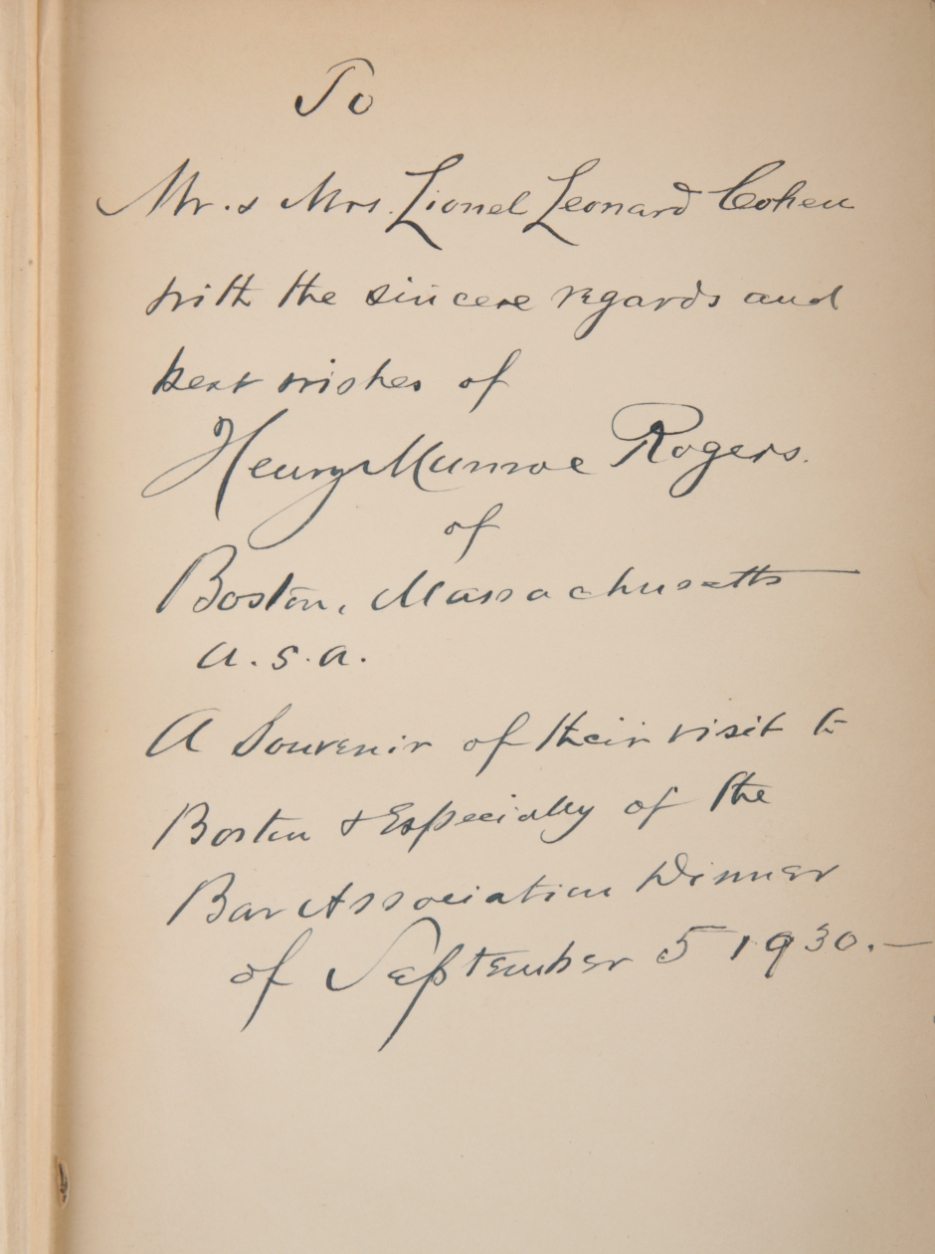 To
Mr. & Mrs. Lionel Leonard Cohen
with the sincere regards and
best wishes of
Henry Munroe Rogers.
of
Boston, Massachusetts
U.S.A.
A Souvenir of their visit to
Boston & Especially of the
Bar Association Dinner
of September 5 1930.—